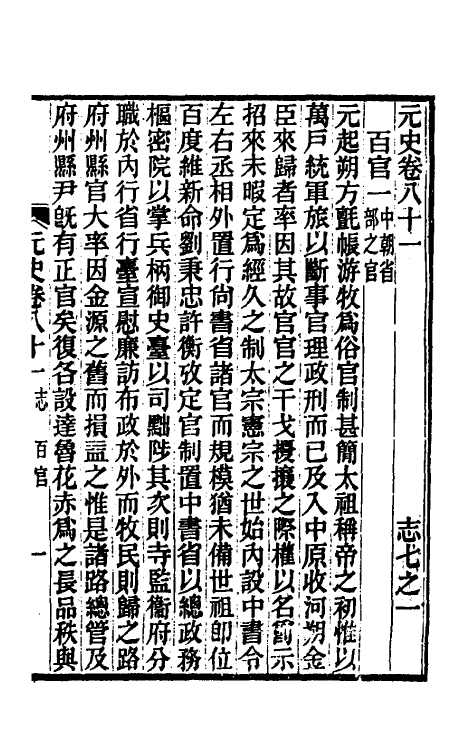 元史卷八十一 志七之一
百官一 中朝省部之官
元起朔方氈帳游牧爲俗官制甚簡太祖稱帝之初惟以
萬戶統軍旅以斷事官理政刑而已及入中原收河朔金
臣來歸者率因其故官官之干戈擾攘之際權以名爵示
招來未暇定爲經久之制太宗憲宗之世始內設中書令
左右丞相外置行尙書省諸官而規模猶未備世祖卽位
百度維新命劉秉忠許衡攷定官制置中書省以總政務
樞密院以掌兵柄御史臺以司黜陟其次則寺監衞府分
職於內行省行臺宣慰廉訪布政於外而牧民則歸之路
府州縣官大率因金源之舊而損益之惟是諸路總管及
府州縣尹旣有正官矣復各設達魯花赤爲之長品秩與
元史卷八十一 志 百官 一